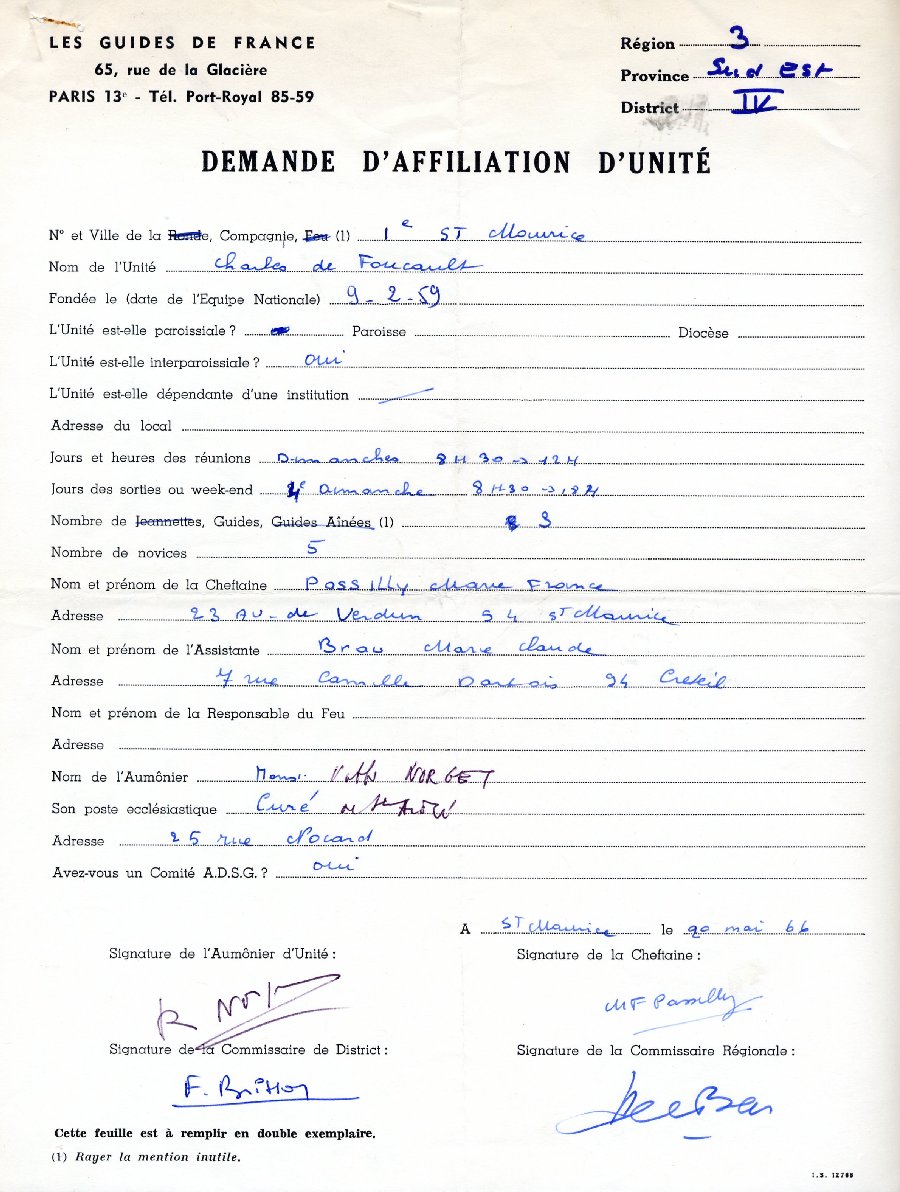 LES GUIDES DE FRANCE
65, rue de la Glacière
PARIS 13e - Tél. Port-Royal 85-59
Région 3
Province Sud Est
District IV
DEMANDE D'AFFILIATION D'UNITÉ
N° et Ville de la Ronde, Compagnie, Feu (1) 1e ST Maurice
Nom de l'Unité Charles de Foucault
Fondée le (date de l'Equipe Nationale) 9-2-59
L'Unité est-elle paroissiale ? Paroisse Diocèse
L'Unité est-elle interparoissiale ? oui
L'Unité est-elle dépendante d'une institution
Adresse du local
Jours et heures des réunions Dimanches 8H30 → 12H
Jours des sorties ou week-end 4e dimanche 8H30 → 18H
Nombre de Jeannettes, Guides, Guides Aînées (1) 3
Nombre de novices 5
Nom et prénom de la Cheftaine Passilly Marie France
Adresse 23 Av. de Verdun 94 ST Maurice
Nom et prénom de l'Assistante Marie Claude
Adresse 7 rue Camille Dartois 94 Creteil
Nom et prénom de la Responsable du Feu
Adresse
Nom de l'Aumônier NORGET
Son poste ecclésiastique Curé de St André
Adresse 25 rue Nocard
Avez-vous un Comité A.D.S.G. ? oui
A ST Maurice le 20 mai 66
Signature de l'Aumônier d'Unité :
Signature de la Cheftaine :
MF Passilly
Signature de la Commissaire de District :
Signature de la Commissaire Régionale :
Cette feuille est à remplir en double exemplaire.
(1) Rayer la mention inutile.